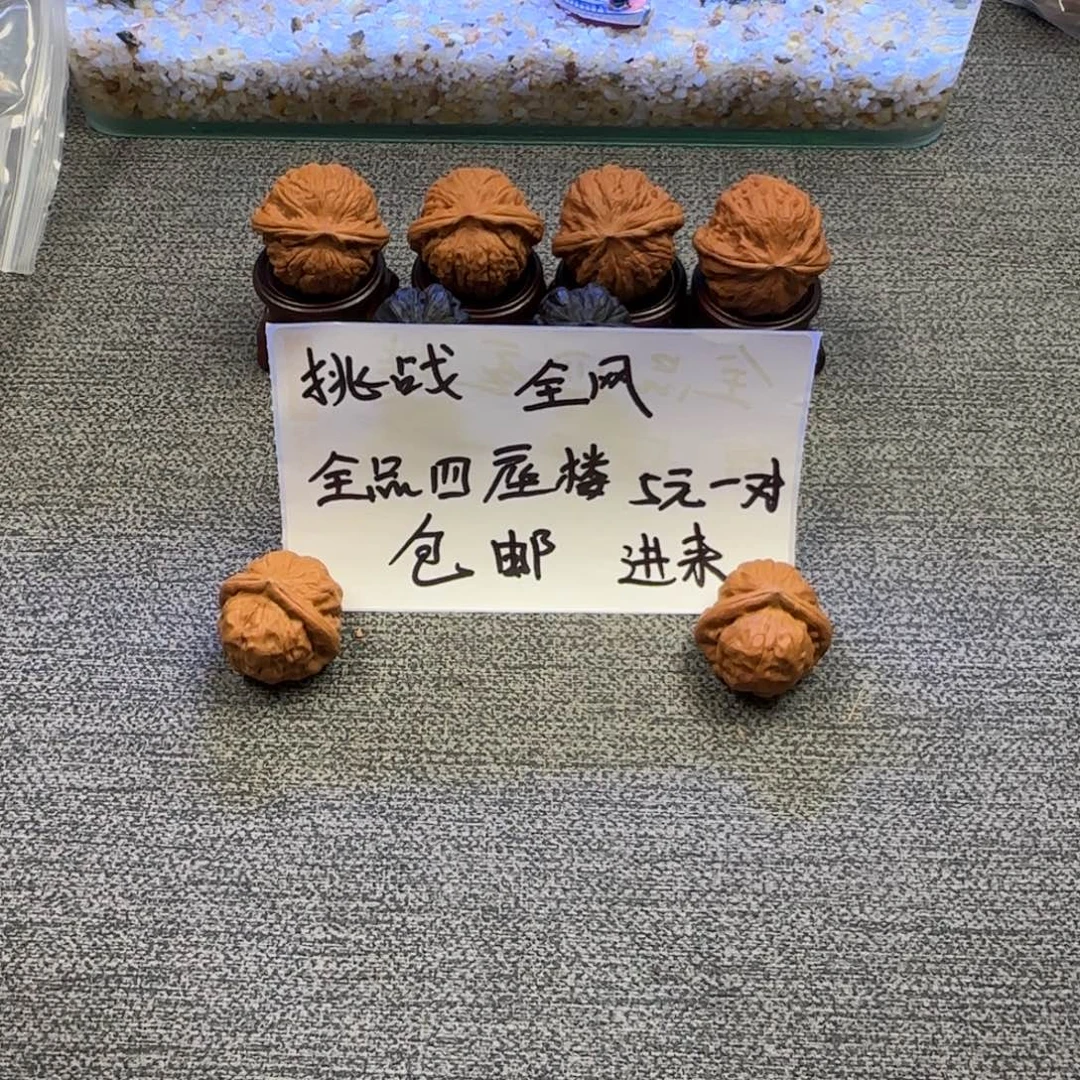 挑战 全网
全品四座楼 5元一对
包邮 进来